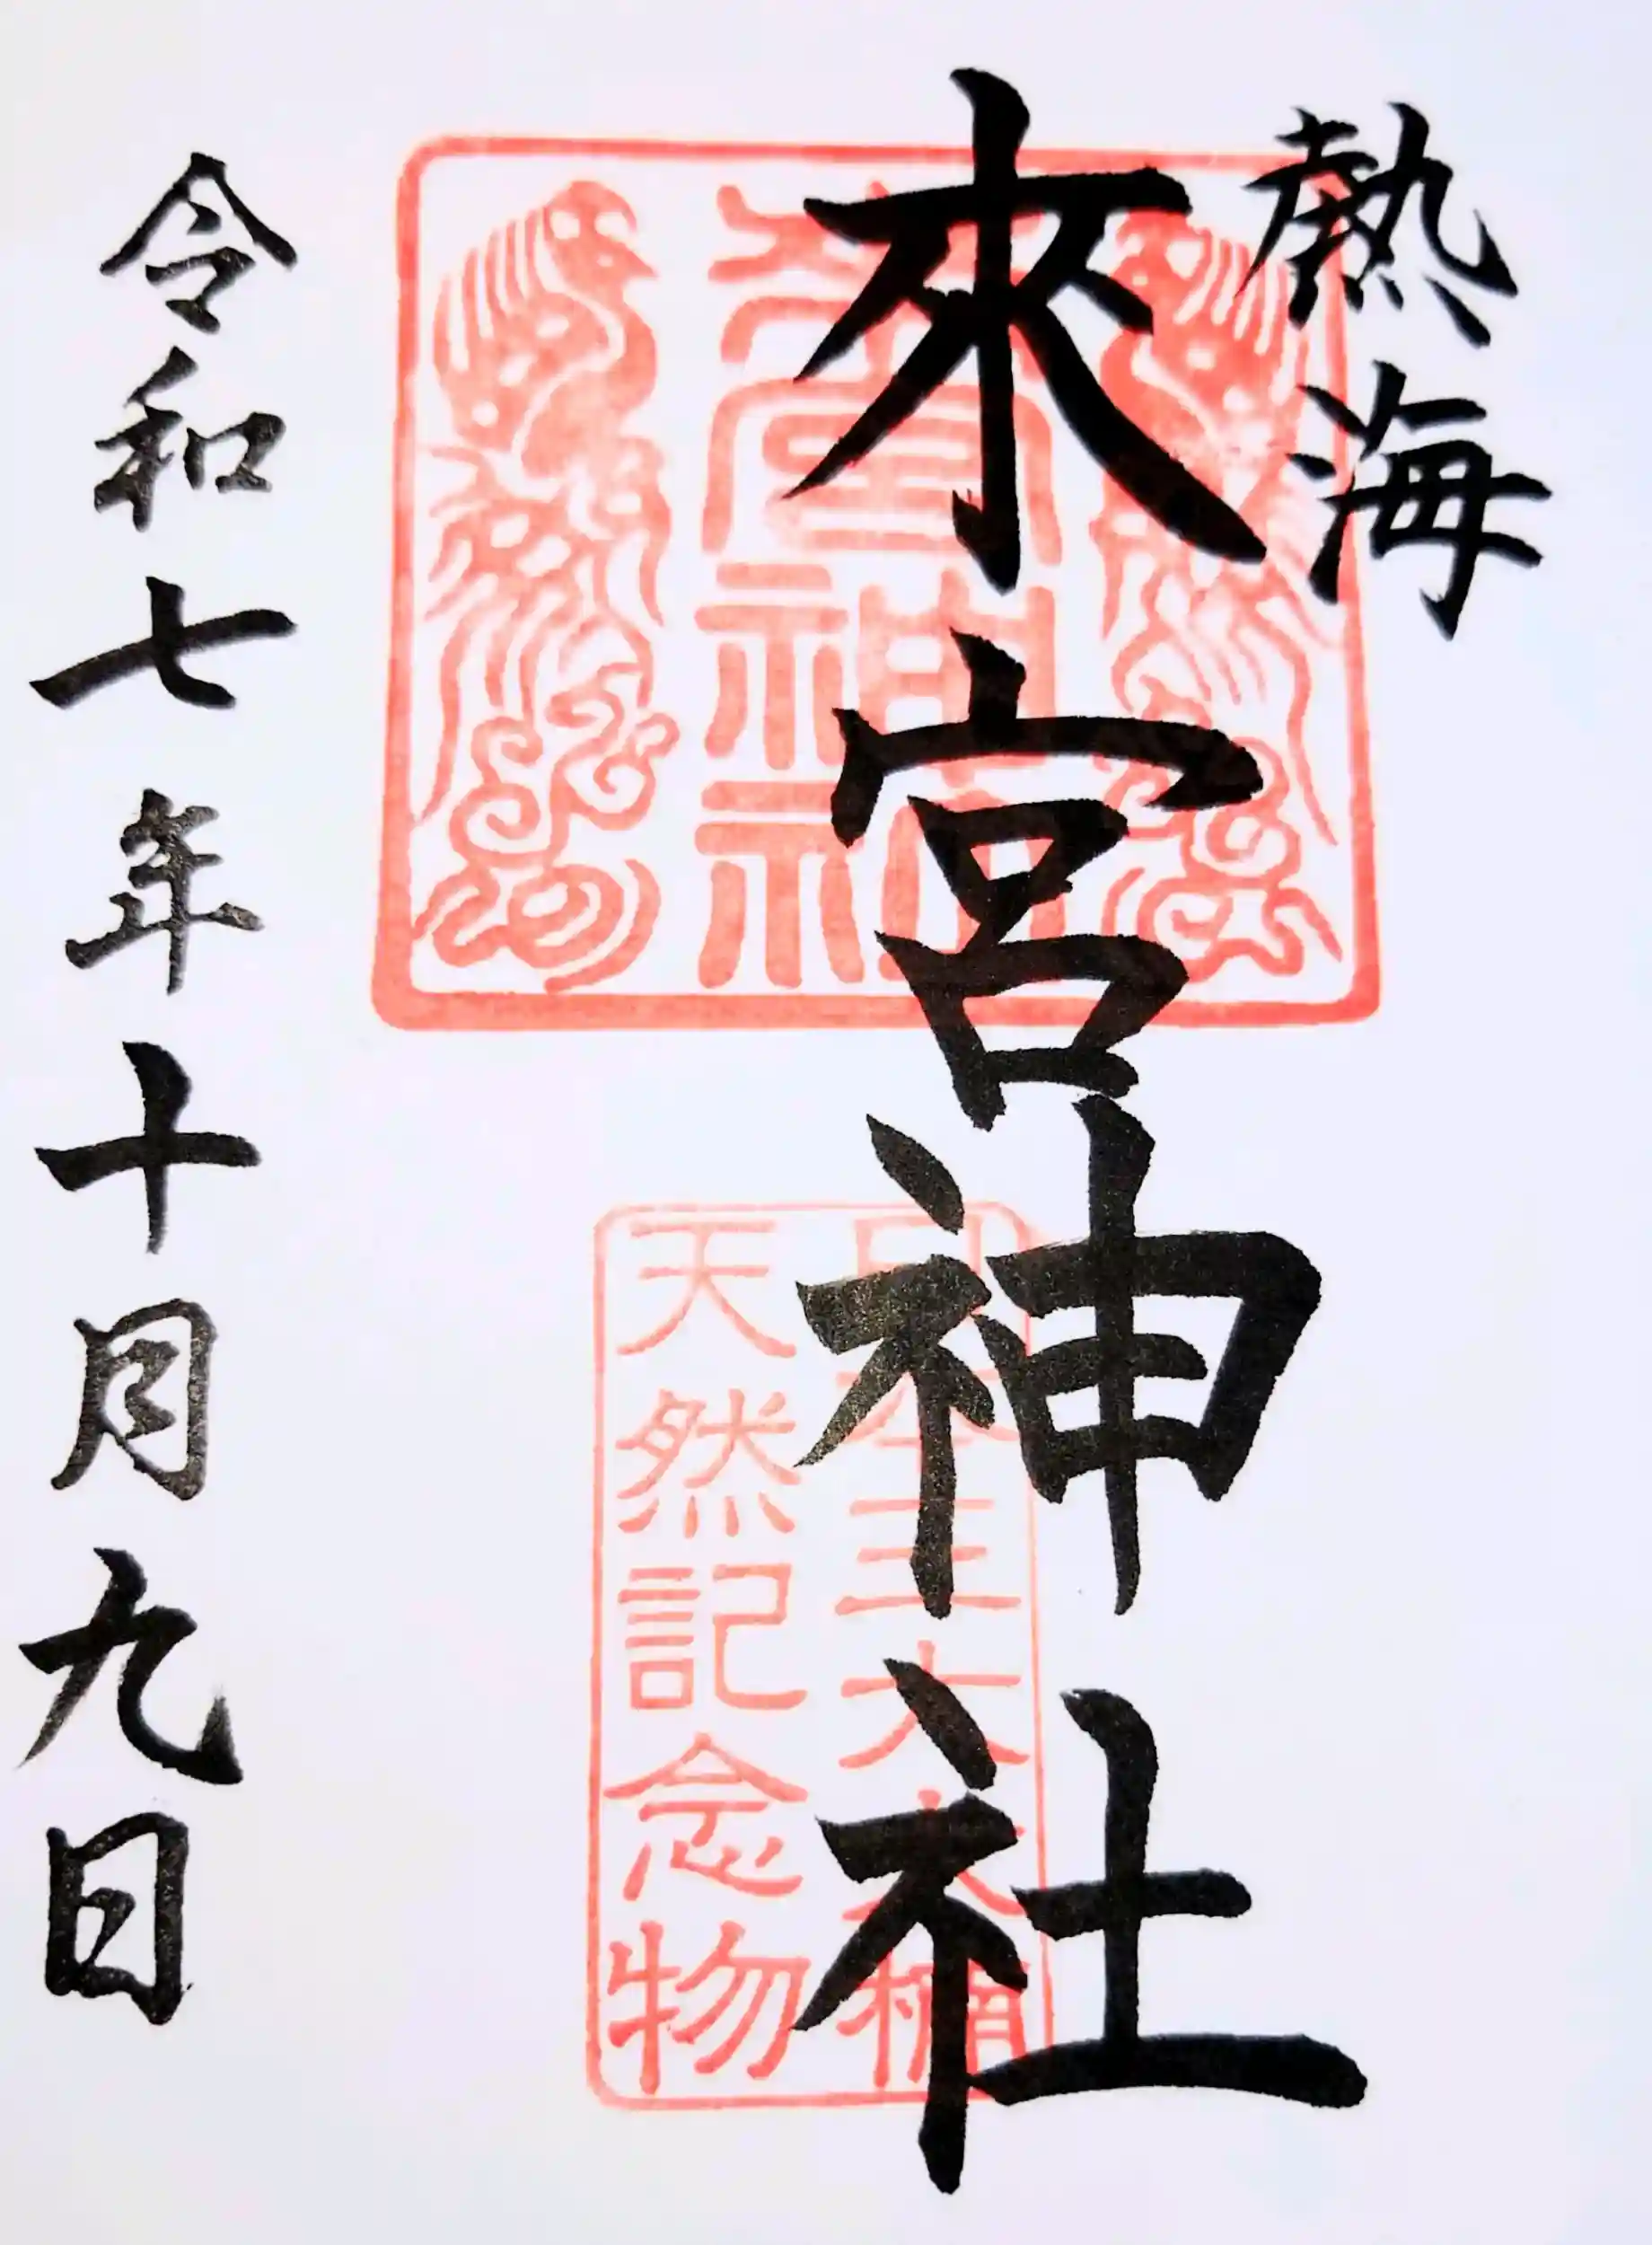 熱海
來宮神社
來宮神社
日本三大大楠
天然記念物
令和七年十月九日